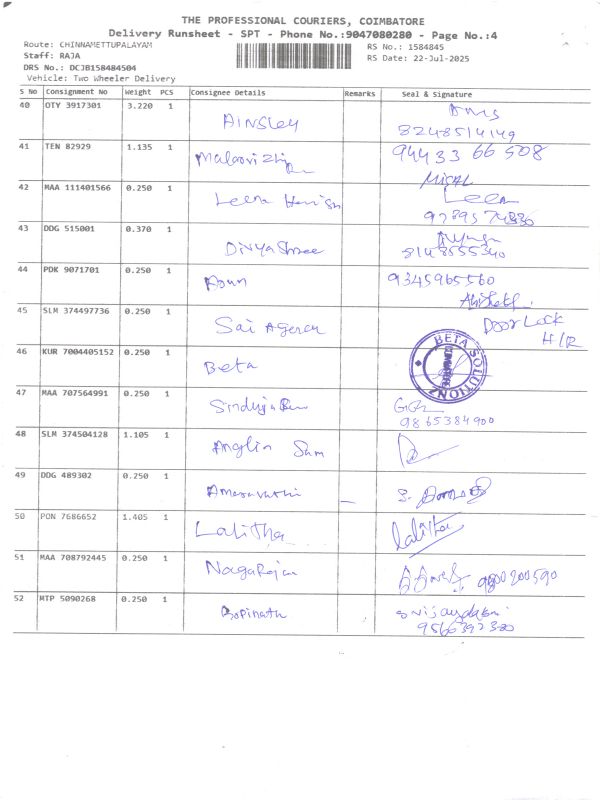 THE PROFESSIONAL COURIERS, COIMBATORE
Delivery Runsheet - SPT - Phone No.:9047080280 - Page No.:4
Route: CHINNAMETTUPALAYAM RS No.: 1584845
Staff: RAJA RS Date: 22-Jul-2025
DRS No.: DCJB158484504
Vehicle: Two Wheeler Delivery
S No Consignment No Weight PCS Consignee Details Remarks Seal & Signature
40 OTY 3917301 3.220 1
AINSLEY 8248514149
41 TEN 82929 1.135 1 94433 66 508
42 MAA 111401566 0.250 1
Leena Leena
43 DDG 515001 0.370 1
DivyaShree 8148555340
44 PDK 9071701 0.250 1 9345965560
Arun
45 SLM 374497736 0.250 1 Door Lock
Sai Agency
46 KUR 7004405152 0.250 1 BETA SOLUTIONZ
Beta
47 MAA 707564991 0.250 1
9865384900
48 SLM 374504128 1.105 1
Anglin Sam
49 DDG 489302 0.250 1
Amaravathi
50 PON 7686652 1.405 1
Lalitha Lalitha
51 MAA 708792445 0.250 1
Nagarajan
52 MTP 5090268 0.250 1
Gopinath